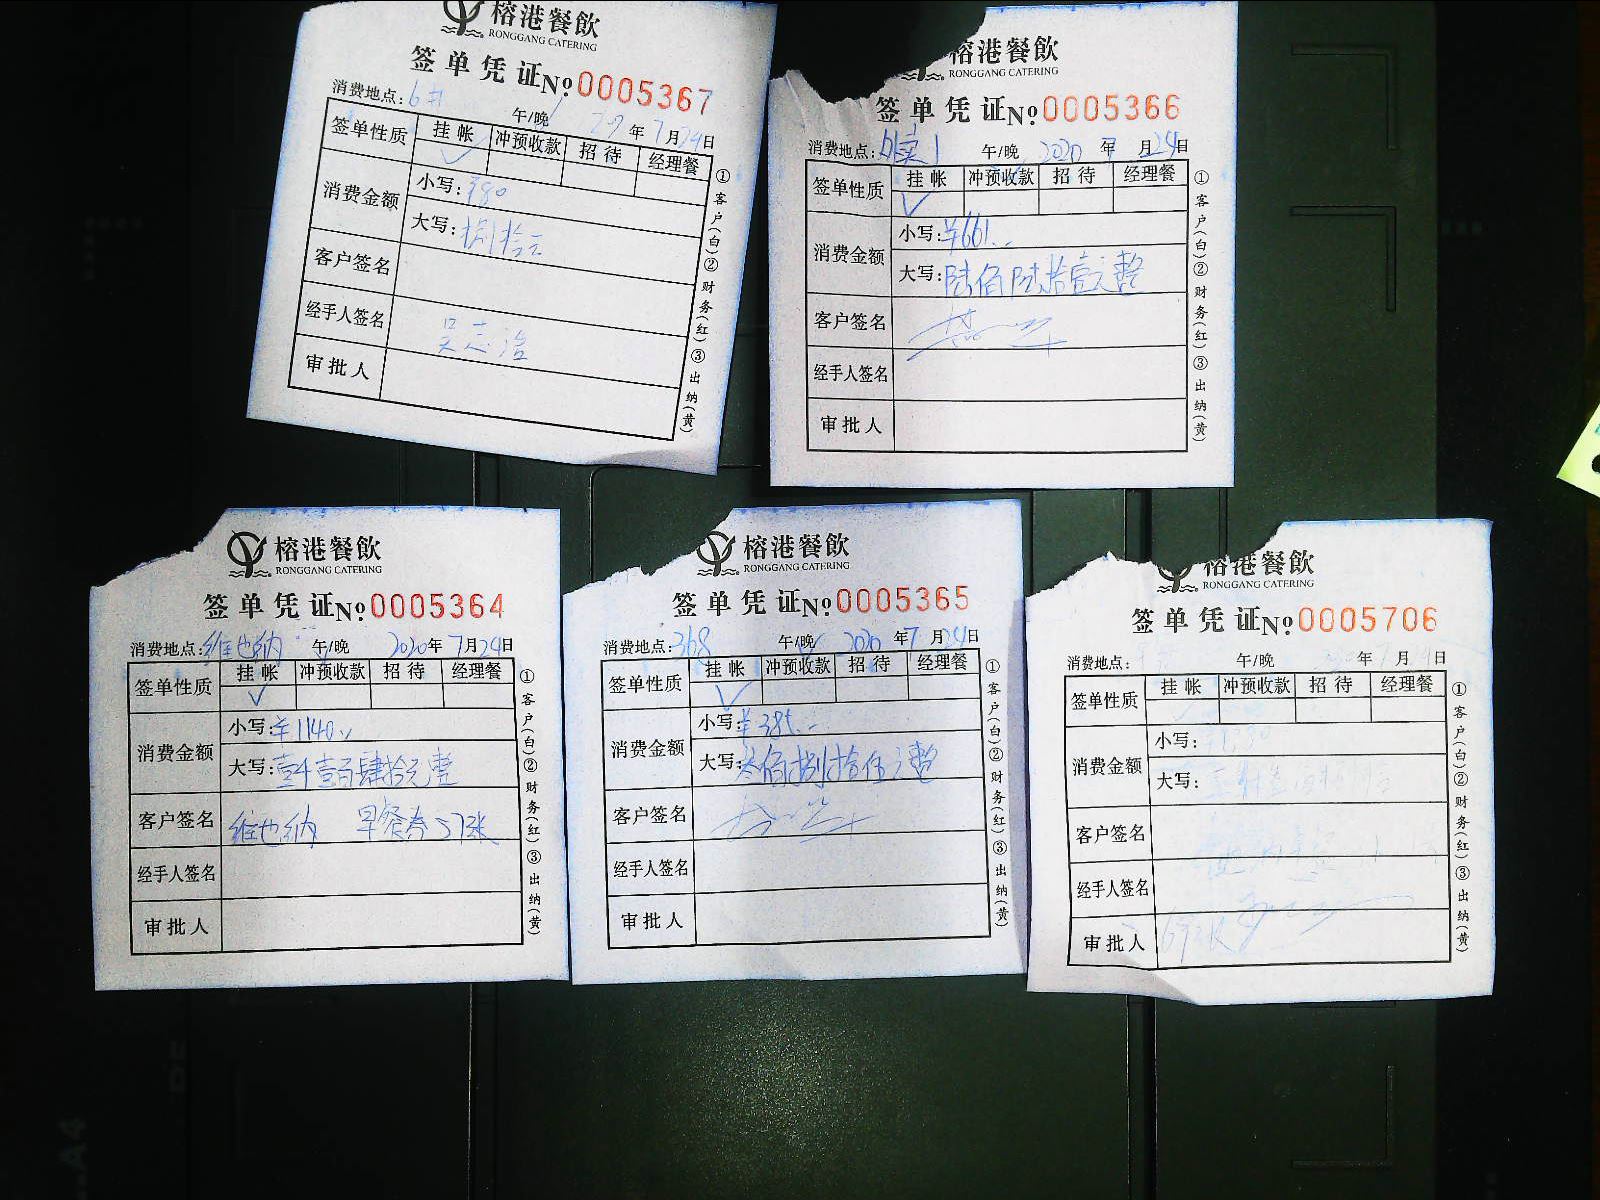 榕港餐飲
RONGGANG CATERING
签单凭证 No 0005367
消费地点: 6# 午/晚 年7月24日
签单性质 挂帐 冲预收款 招待 经理餐
消费金额 小写: ¥80
大写: 捌拾元
客户签名
经手人签名 吴志治
审批人
①客户(白)②财务(红)③出纳(黄)
榕港餐飲
RONGGANG CATERING
签单凭证 No 0005366
消费地点: 午/晚 2020年7月24日
签单性质 挂帐 冲预收款 招待 经理餐
消费金额 小写: ¥661.-
大写: 陆佰陆拾壹元整
客户签名
经手人签名
审批人
①客户(白)②财务(红)③出纳(黄)
榕港餐飲
RONGGANG CATERING
签单凭证 No 0005364
消费地点: 维也纳 午/晚 2020年7月24日
签单性质 挂帐 冲预收款 招待 经理餐
消费金额 小写: ¥1140.-
大写: 壹千壹百肆拾元整
客户签名 维也纳 早餐券57张
经手人签名
审批人
①客户(白)②财务(红)③出纳(黄)
榕港餐飲
RONGGANG CATERING
签单凭证 No 0005365
消费地点: 368 午/晚 2020年7月24日
签单性质 挂帐 冲预收款 招待 经理餐
消费金额 小写: ¥385.-
大写: 叁佰捌拾伍元整
客户签名
经手人签名
审批人
①客户(白)②财务(红)③出纳(黄)
榕港餐飲
RONGGANG CATERING
签单凭证 No 0005706
消费地点: 午/晚 年 月 日
签单性质 挂帐 冲预收款 招待 经理餐
消费金额 小写:
大写:
客户签名
经手人签名
审批人
①客户(白)②财务(红)③出纳(黄)
A4